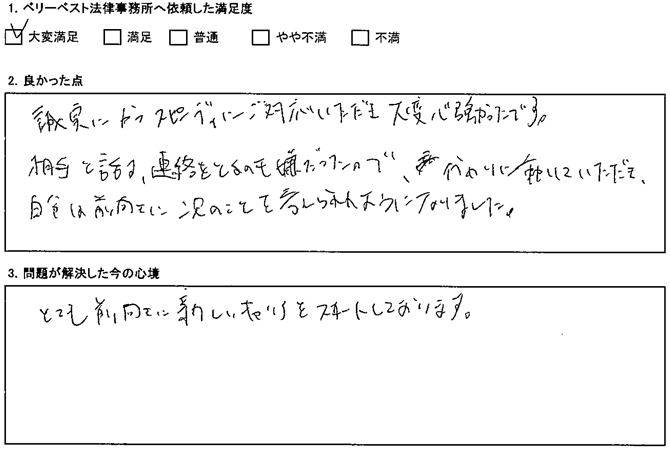 1. ベリーベスト法律事務所へ依頼した満足度
☑ 大変満足 □ 満足 □ 普通 □ やや不満 □ 不満
2. 良かった点
誠実にかつスピーディにご対応いただき大変心強かったです。
相手と話す、連絡をとるのも嫌だったので、代わりに動いていただき、
自分は前向きに次のことを考えられるようになりました。
3. 問題が解決した今の心境
とても前向きに新しいキャリアをスタートしております。